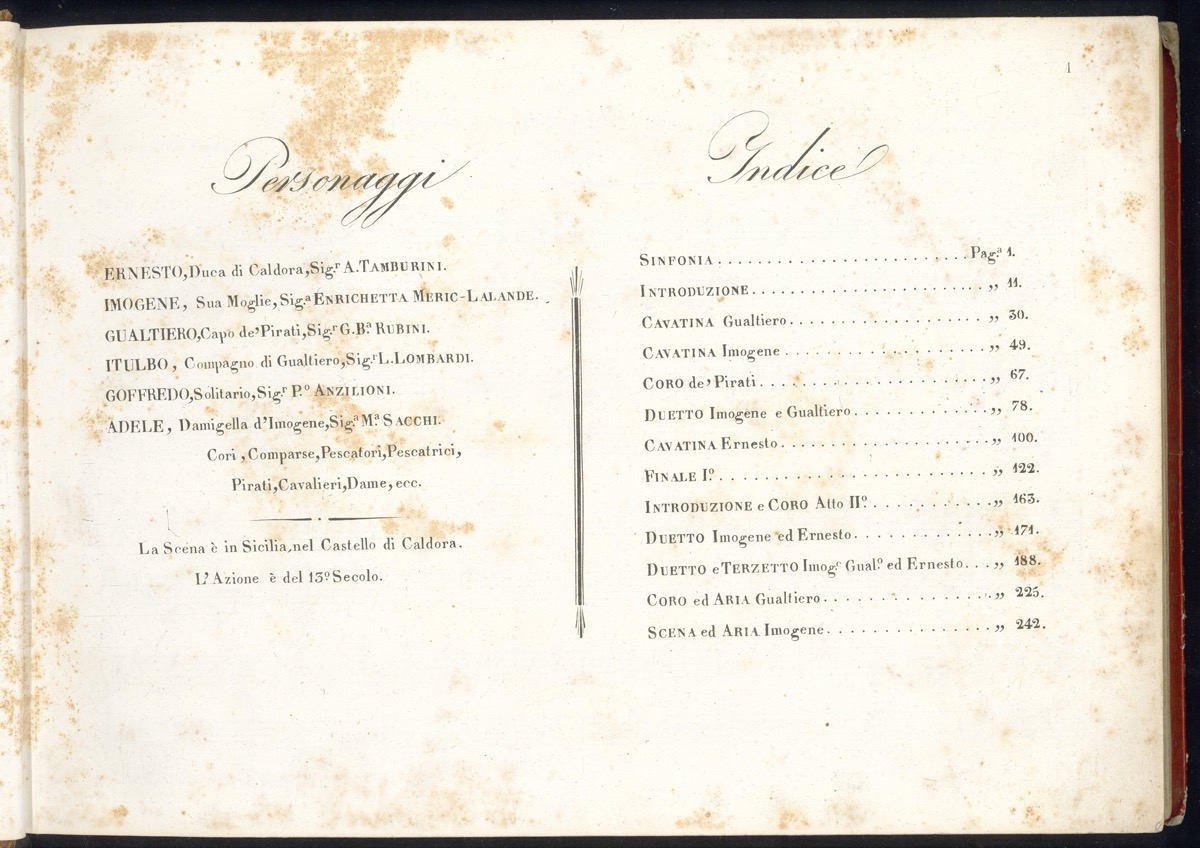 1
Personaggi
ERNESTO, Duca di Caldora, Sig.r A. TAMBURINI.
IMOGENE, Sua Moglie, Sig.a ENRICHETTA MERIC-LALANDE.
GUALTIERO, Capo de' Pirati, Sig.r G. B.a RUBINI.
ITULBO, Compagno di Gualtiero, Sig.r L. LOMBARDI.
GOFFREDO, Solitario, Sig.r P.o ANZILIONI.
ADELE, Damigella d'Imogene, Sig.a M.a SACCHI.
Cori, Comparse, Pescatori, Pescatrici,
Pirati, Cavalieri, Dame, ecc.
La Scena è in Sicilia, nel Castello di Caldora.
L'Azione è del 13º Secolo.
Indice
SINFONIA . . . . . . . . . . . . . . . . . . . . . . Pag.a 1.
INTRODUZIONE . . . . . . . . . . . . . . . . . . . . „ 11.
CAVATINA Gualtiero . . . . . . . . . . . . . . . . . „ 30.
CAVATINA Imogene . . . . . . . . . . . . . . . . . . „ 49.
CORO de' Pirati . . . . . . . . . . . . . . . . . . . . „ 67.
DUETTO Imogene e Gualtiero . . . . . . . . . . . . „ 78.
CAVATINA Ernesto . . . . . . . . . . . . . . . . . . „ 100.
FINALE I.o . . . . . . . . . . . . . . . . . . . . . . . „ 122.
INTRODUZIONE e CORO Atto II.o . . . . . . . . . . . „ 163.
DUETTO Imogene ed Ernesto . . . . . . . . . . . . „ 171.
DUETTO e TERZETTO Imog.e Gual.o ed Ernesto . . . „ 188.
CORO ed ARIA Gualtiero . . . . . . . . . . . . . . . „ 225.
SCENA ed ARIA Imogene . . . . . . . . . . . . . . . „ 242.